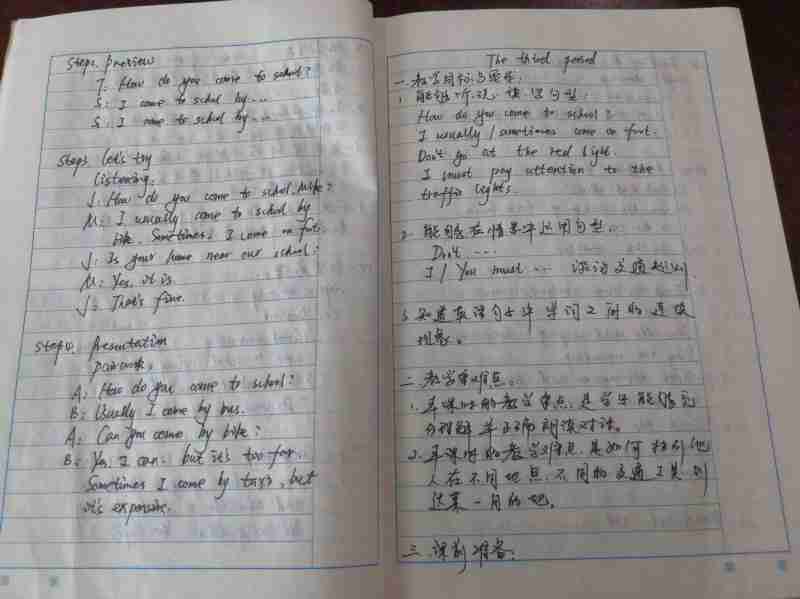 Step2. preview
T: How do you come to school?
S: I come to school by...
S: I come to school by...
Step3. let's try
listening.
J: How do you come to school, Mike?
M: I usually come to school by
bike. Sometimes, I come on foot.
J: Is your home near our school?
M: Yes, it is.
J: That's fine.
Step4. presentation
pairwork.
A: How do you come to school?
B: Usually I come by bus.
A: Can you come by bike?
B: Yes, I can. but it's too far.
Sometimes I come by taxi, but
it's expensive.
The third period
一. 教学目标与要求:
1. 能够听、说、读、写句型:
How do you come to school?
I usually / sometimes come on foot.
Don't go at the red light.
I must pay attention to the
traffic lights
2. 能够在情景中运用句型。
Don't ....
I / You must ... 谈论交通规则.
3. 知道英语句子中单词之间的连读
现象。
二. 教学重难点。
1. 本课时的教学重点是学生能够充
分理解并正确朗读对话。
2. 本课时的教学难点是如何
人在不同地点, 不同的交通工具到
达某一目的地。
三. 课前准备.